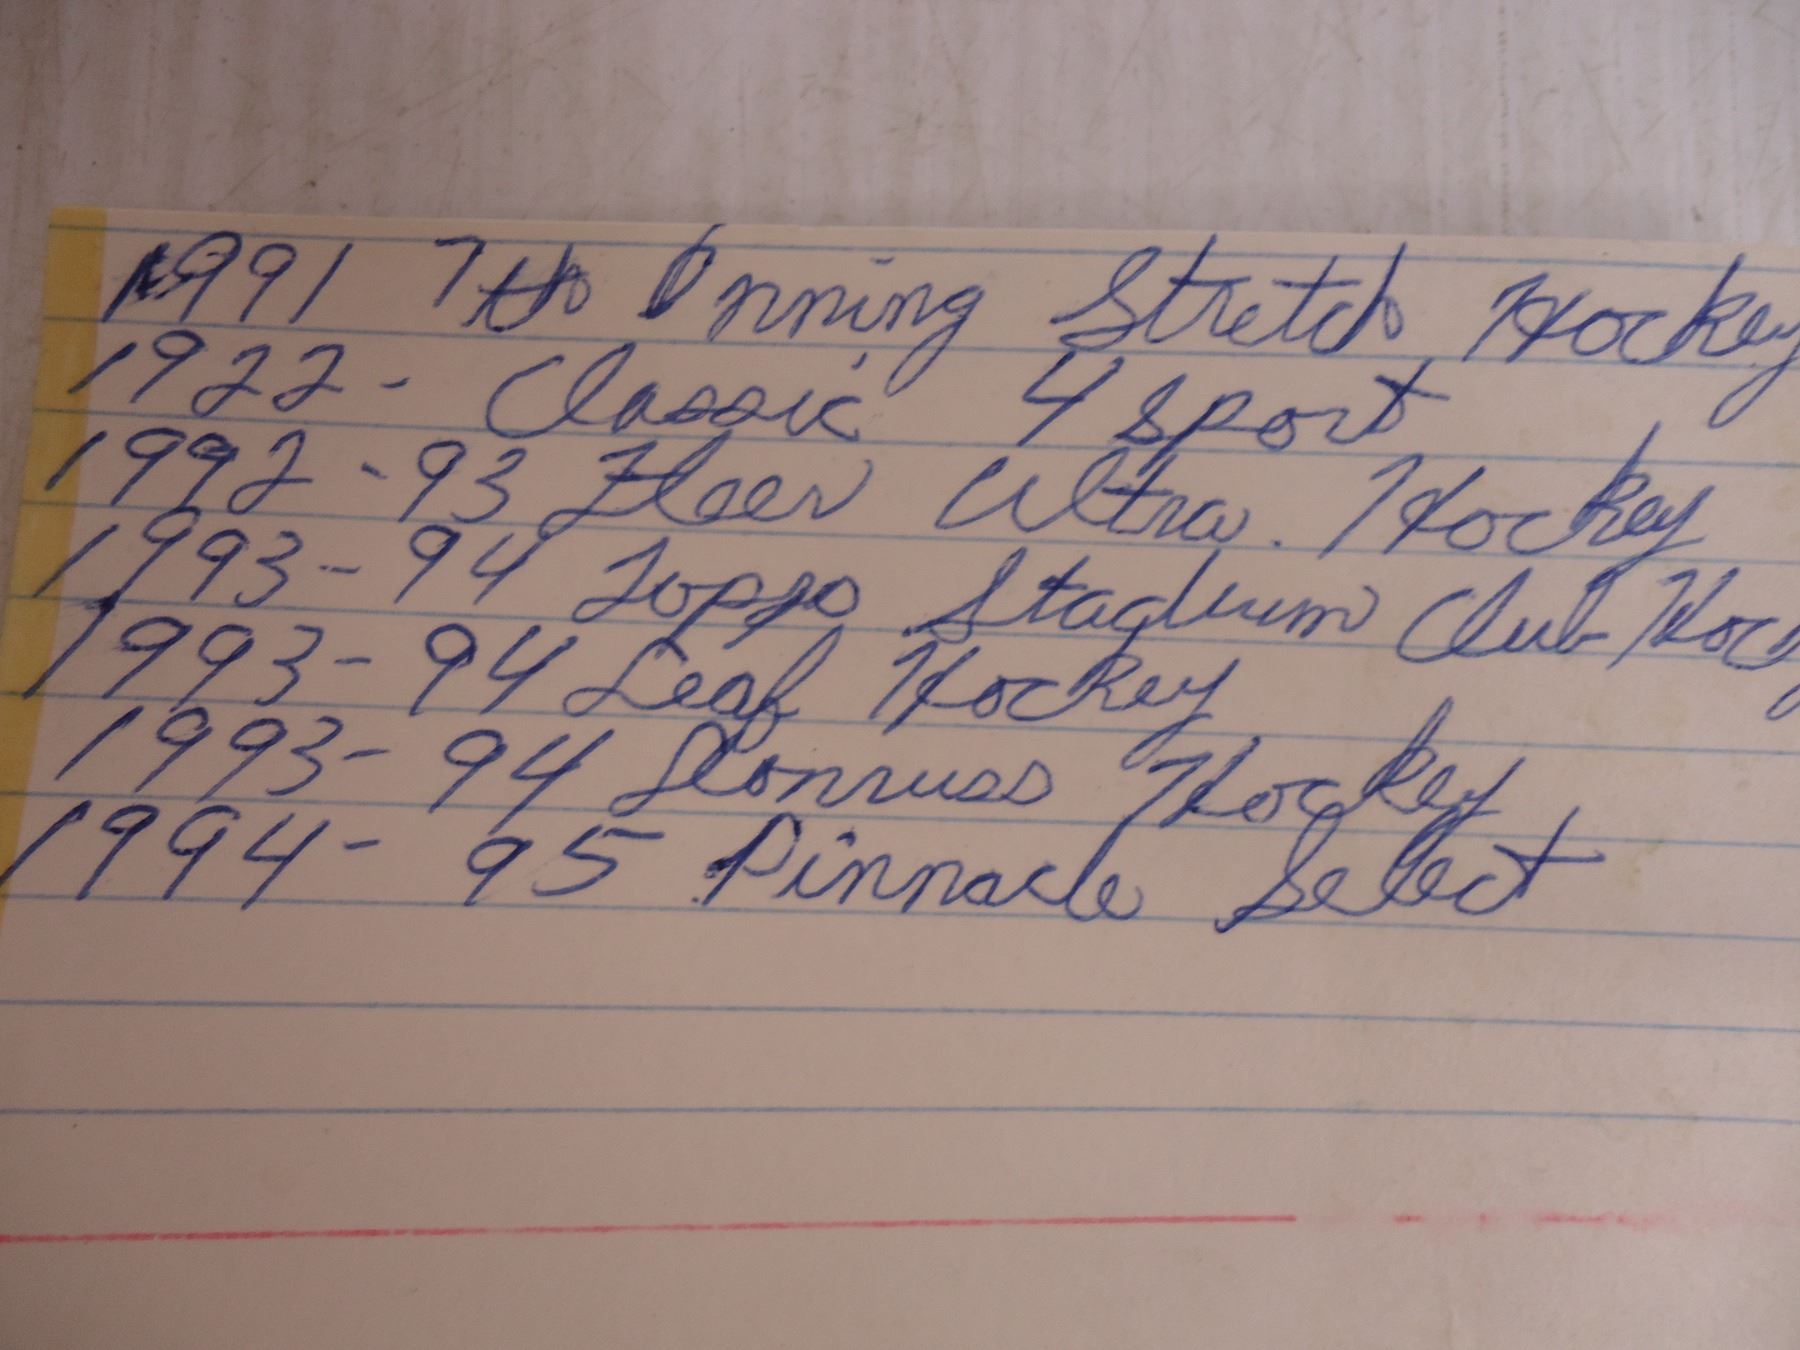 1991 7th Inning Stretch Hockey
1922- Classic 4 Sport
1992-93 Fleer Ultra. Hockey
1993-94 Topps Stadium Club Hoc
1993-94 Leaf Hockey
1993-94 Donruss Hockey
1994-95 Pinnacle Select